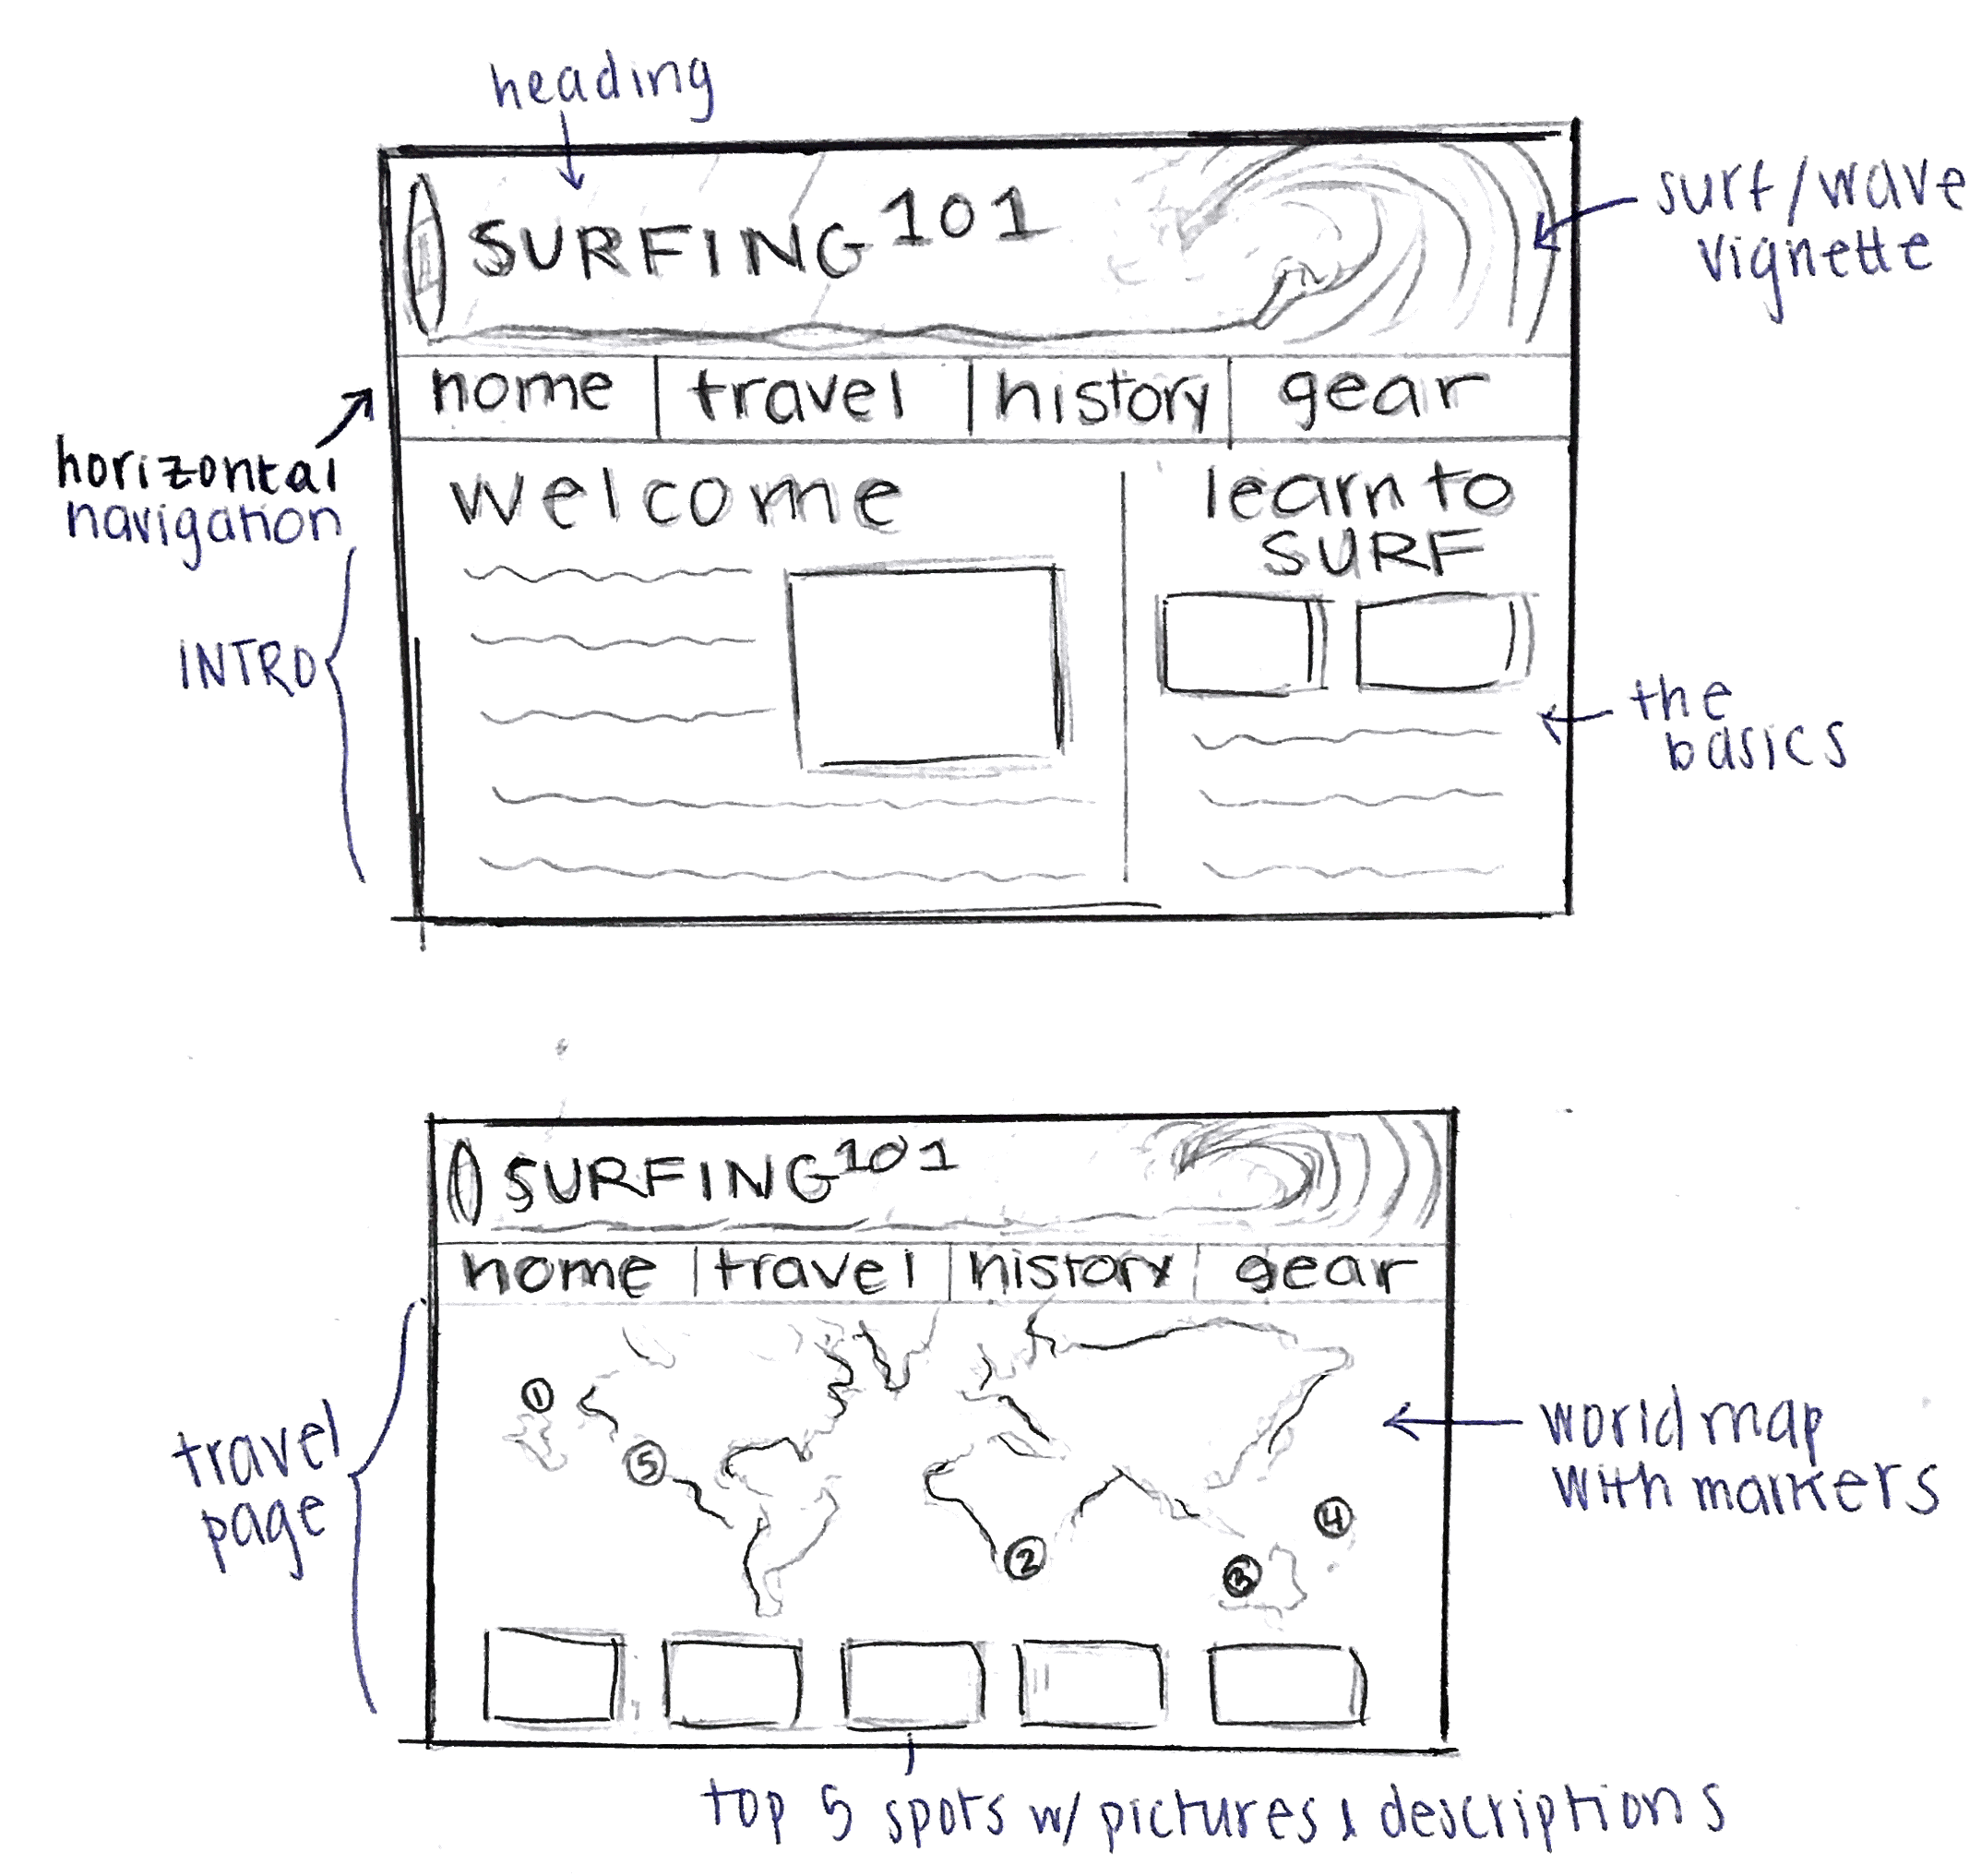 heading
SURFING 101
surf/wave
vignette
home travel history gear
horizontal
navigation
welcome
learn to
SURF
INTRO
the
basics
SURFING 101
home travel history gear
travel
page
world map
with markers
1
5
4
2
3
top 5 spots w/ pictures & descriptions